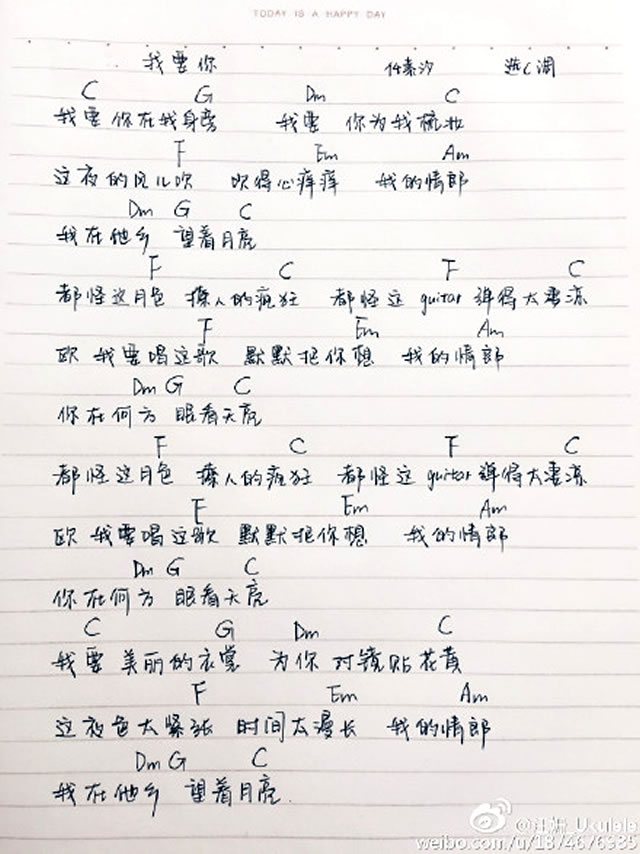 TODAY IS A HAPPY DAY
我要你 任素汐 选C调
C G Dm C
我要 你在我身旁 我要 你为我梳妆
F Em Am
这夜的风儿吹 吹得心痒痒 我的情郎
Dm G C
我在他乡 望着月亮
F C F C
都怪这月色 撩人的疯狂 都怪这 guitar 弹得太凄凉
F Em Am
欧 我要唱这歌 默默把你想 我的情郎
Dm G C
你在何方 眼看天亮
F C F C
都怪这月色 撩人的疯狂 都怪这 guitar 弹得太凄凉
F Em Am
欧 我要唱这歌 默默把你想 我的情郎
Dm G C
你在何方 眼看天亮
C G Dm C
我要 美丽的衣裳 为你 对镜贴花黄
F Em Am
这夜色太紧张 时间太漫长 我的情郎
Dm G C
我在他乡 望着月亮.
_Ukulele
weibo.com/u/1874676985